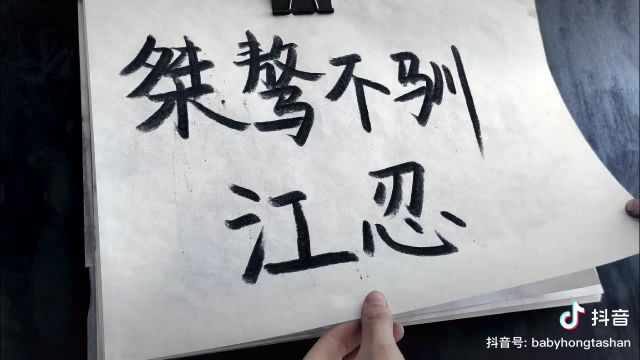 桀骜不驯
江忍
抖音
抖音号: babyhongtashan